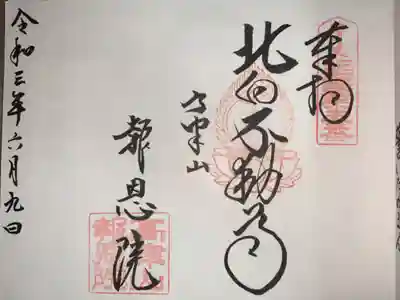 奉拝
北向不動尊
報恩院
令和三年六月九日